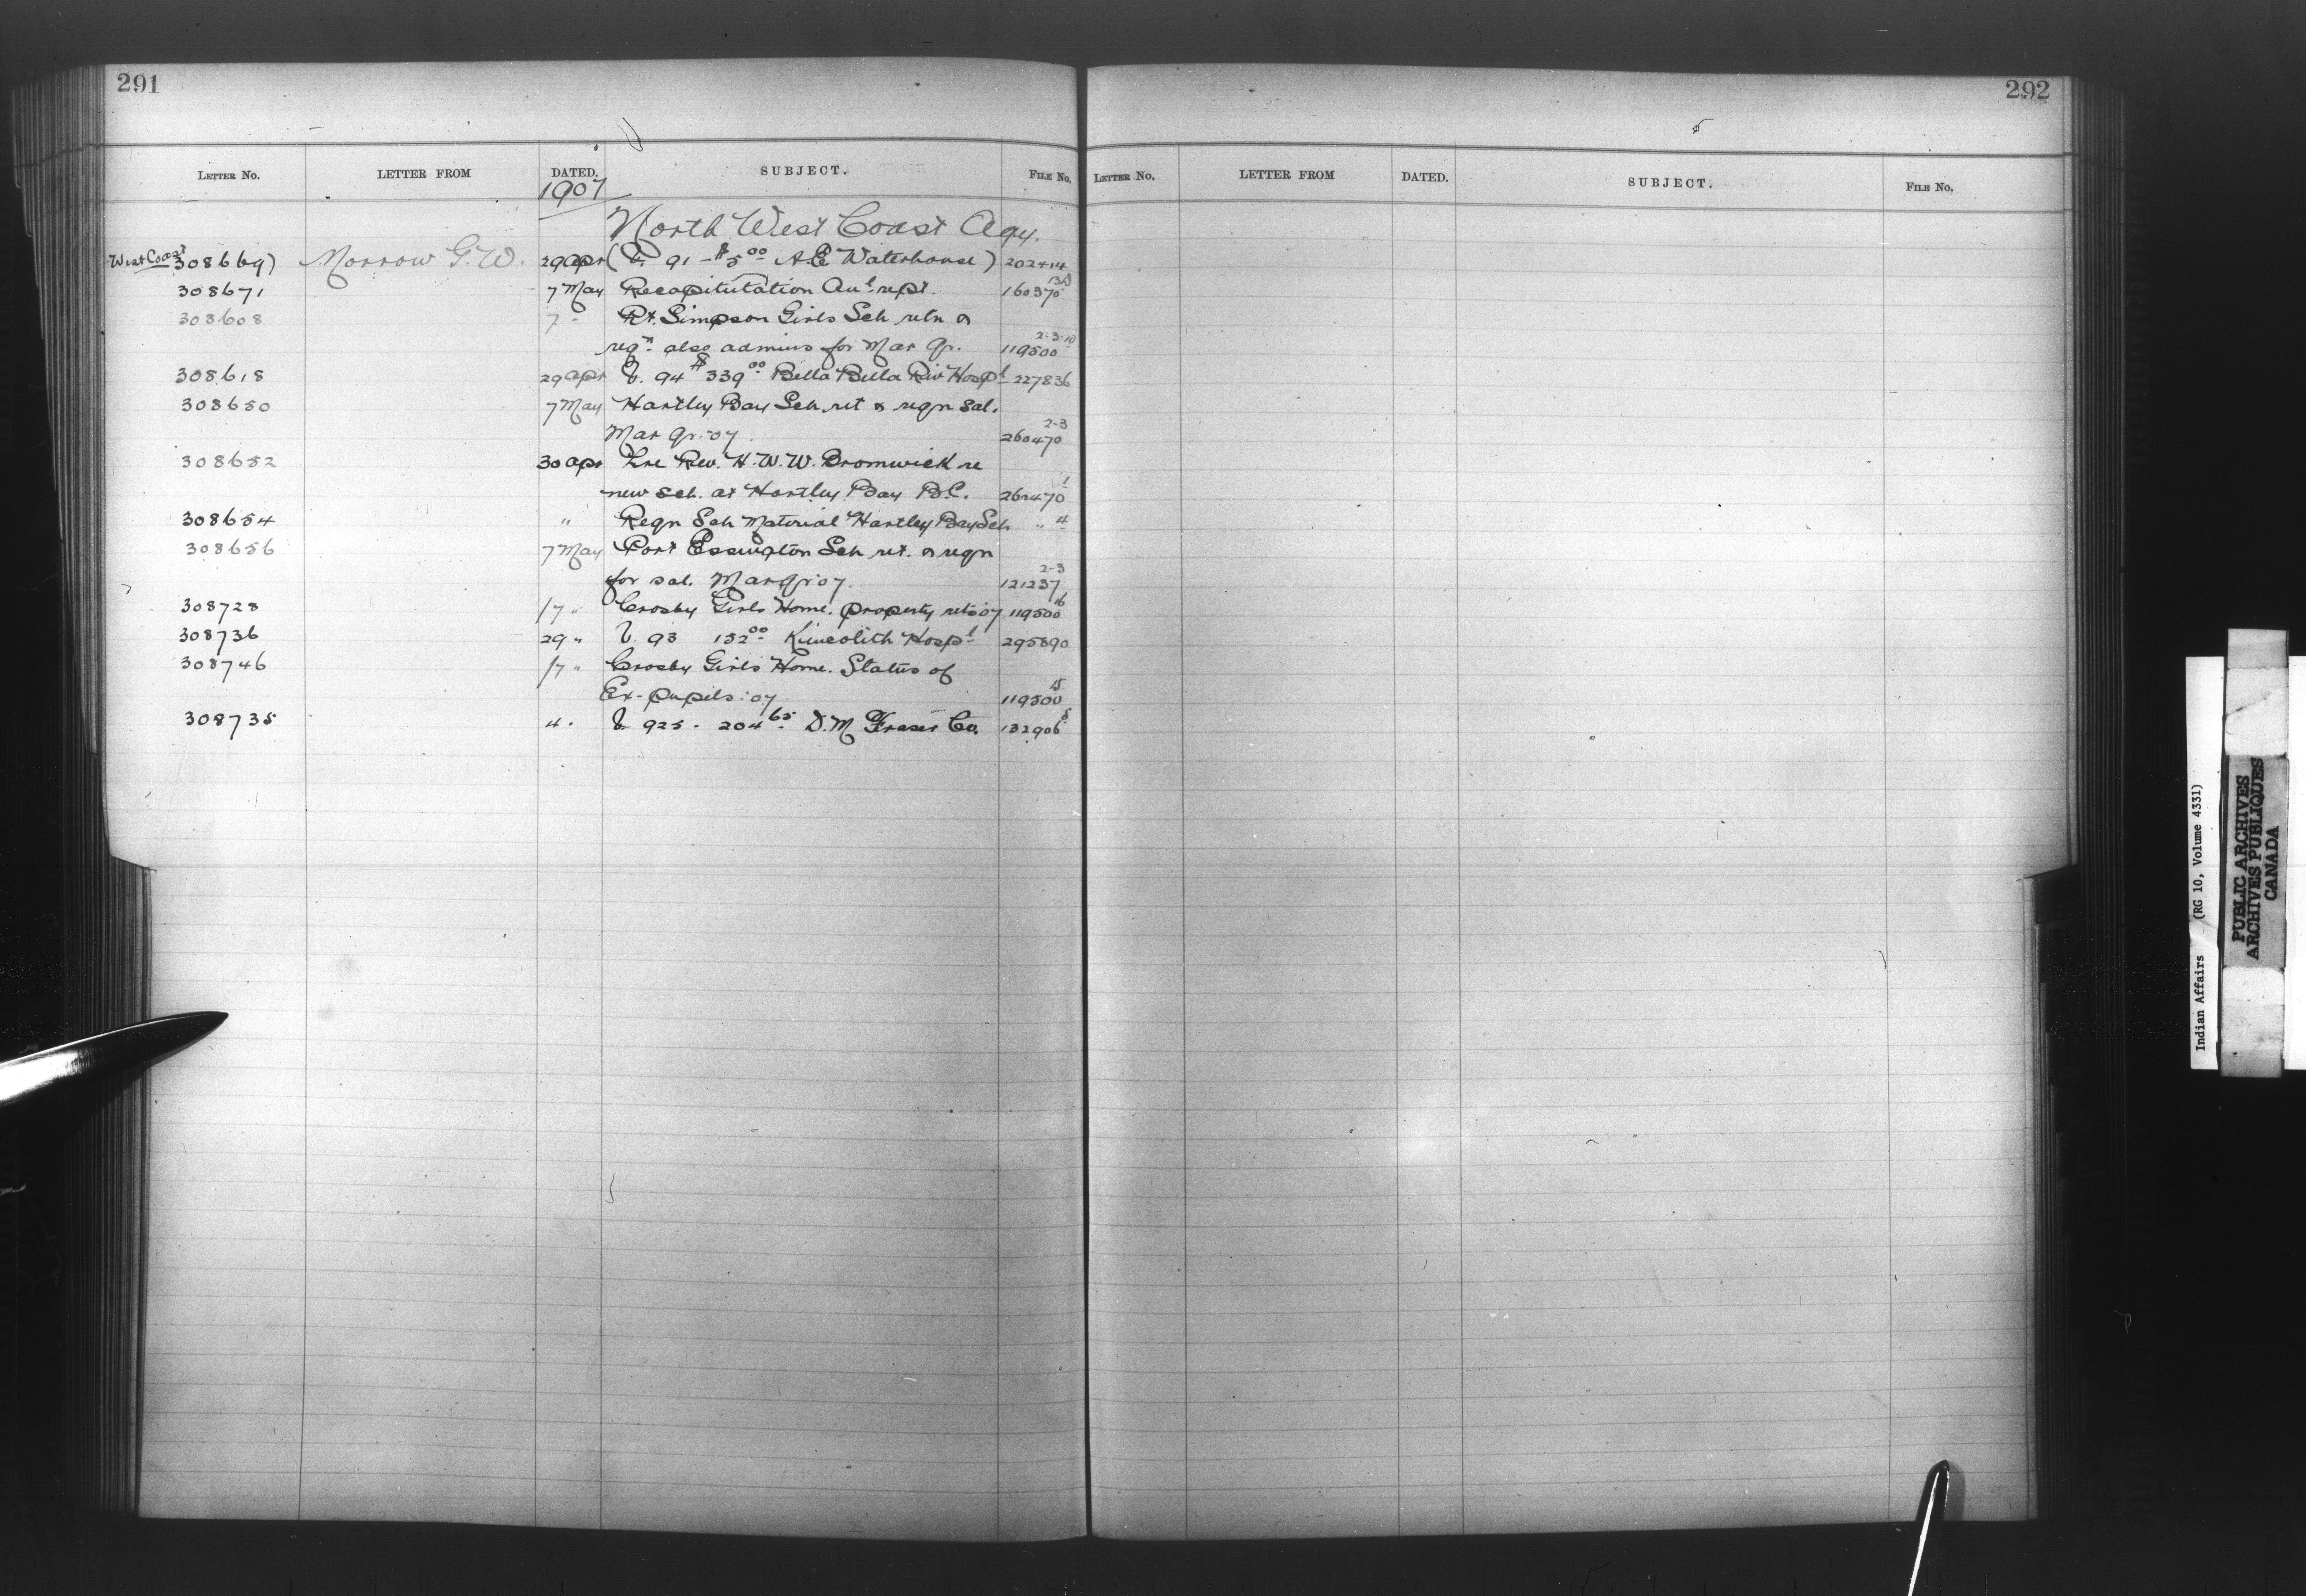 291
LETTER No. LETTER FROM DATED. SUBJECT. FILE No.
1907
North West Coast Agy.
West Coast 308669) Morrow G.W. 29 Apr (V. 91 - $5.00 A.E. Waterhouse) 202414
308671 7 May Recapitutation Aul rept. 160370 13B
308608 7 " Pt. Simpson Girls Sch retn &
reqn also admins for Mar qr. 119500 2-3-10
308618 29 Apr V. 94 $339.00 Bella Bella Riv Hospl 227836
308650 7 May Hartley Bay Sch ret & reqn sal.
Mar qr. 07 260470 2-3
308652 30 Apr Lre Rev. H.W.W. Bromwick re
new sch. at Hartley Bay B.C. 260470 1
308654 " Reqn Sch Material Hartley Bay Sch " 4
308656 7 May Port Essington Sch ret. & reqn
for sal. Mar qr 07. 121237 2-3
308728 /7 " Crosby Girls Home. property retn 07 119500 16
308736 29 " V. 93 132.00 Kincolith Hospl 295890
308746 /7 " Crosby Girls Home. Status of
Ex-pupils: 07 119500 15
308735 4 . V 925 - 204.65 D.M Fraser Co. 132906 8
292
LETTER No. LETTER FROM DATED. SUBJECT. FILE No.
Indian Affairs (RG 10, Volume 4331)
PUBLIC ARCHIVES
ARCHIVES PUBLIQUES
CANADA